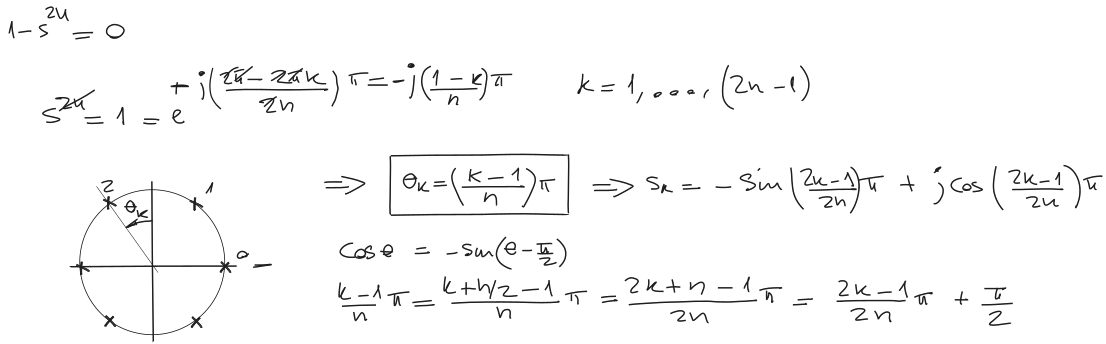 1 - s^{2n} = 0
s^{2n} = 1 = e^{+j(\frac{2π - 2πk}{2n})π = -j(\frac{1-k}{n})π} k = 1, ...., (2n - 1)
⇒ θ_k = (\frac{k-1}{n})π ⇒ s_k = - Sin(\frac{2k-1}{2n})π + j cos(\frac{2k-1}{2n})π
2 1
θ_k
0
cos θ = - sin(θ - \frac{π}{2})
\frac{k-1}{n}π = \frac{k+n/2-1}{n}π = \frac{2k+n-1}{2n}π = \frac{2k-1}{2n}π + \frac{π}{2}